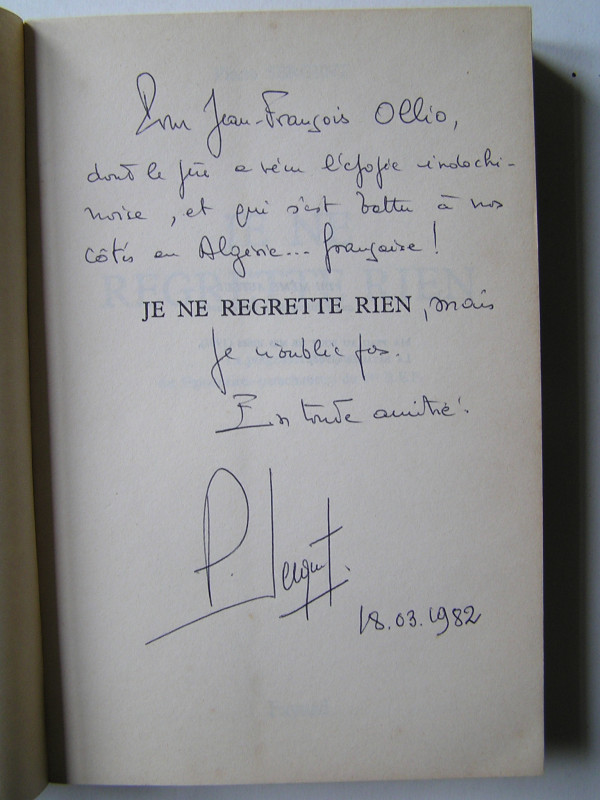 Pour Jean-François Ollio,
dont le père a vécu l'épopée indochi-
noise, et qui s'est battu à nos
côtés en Algérie... française!
JE NE REGRETTE RIEN, mais
je n'oublie pas.
En toute amitié.
P. Sergent.
18.03.1982
JE NE
REGRETTE RIEN